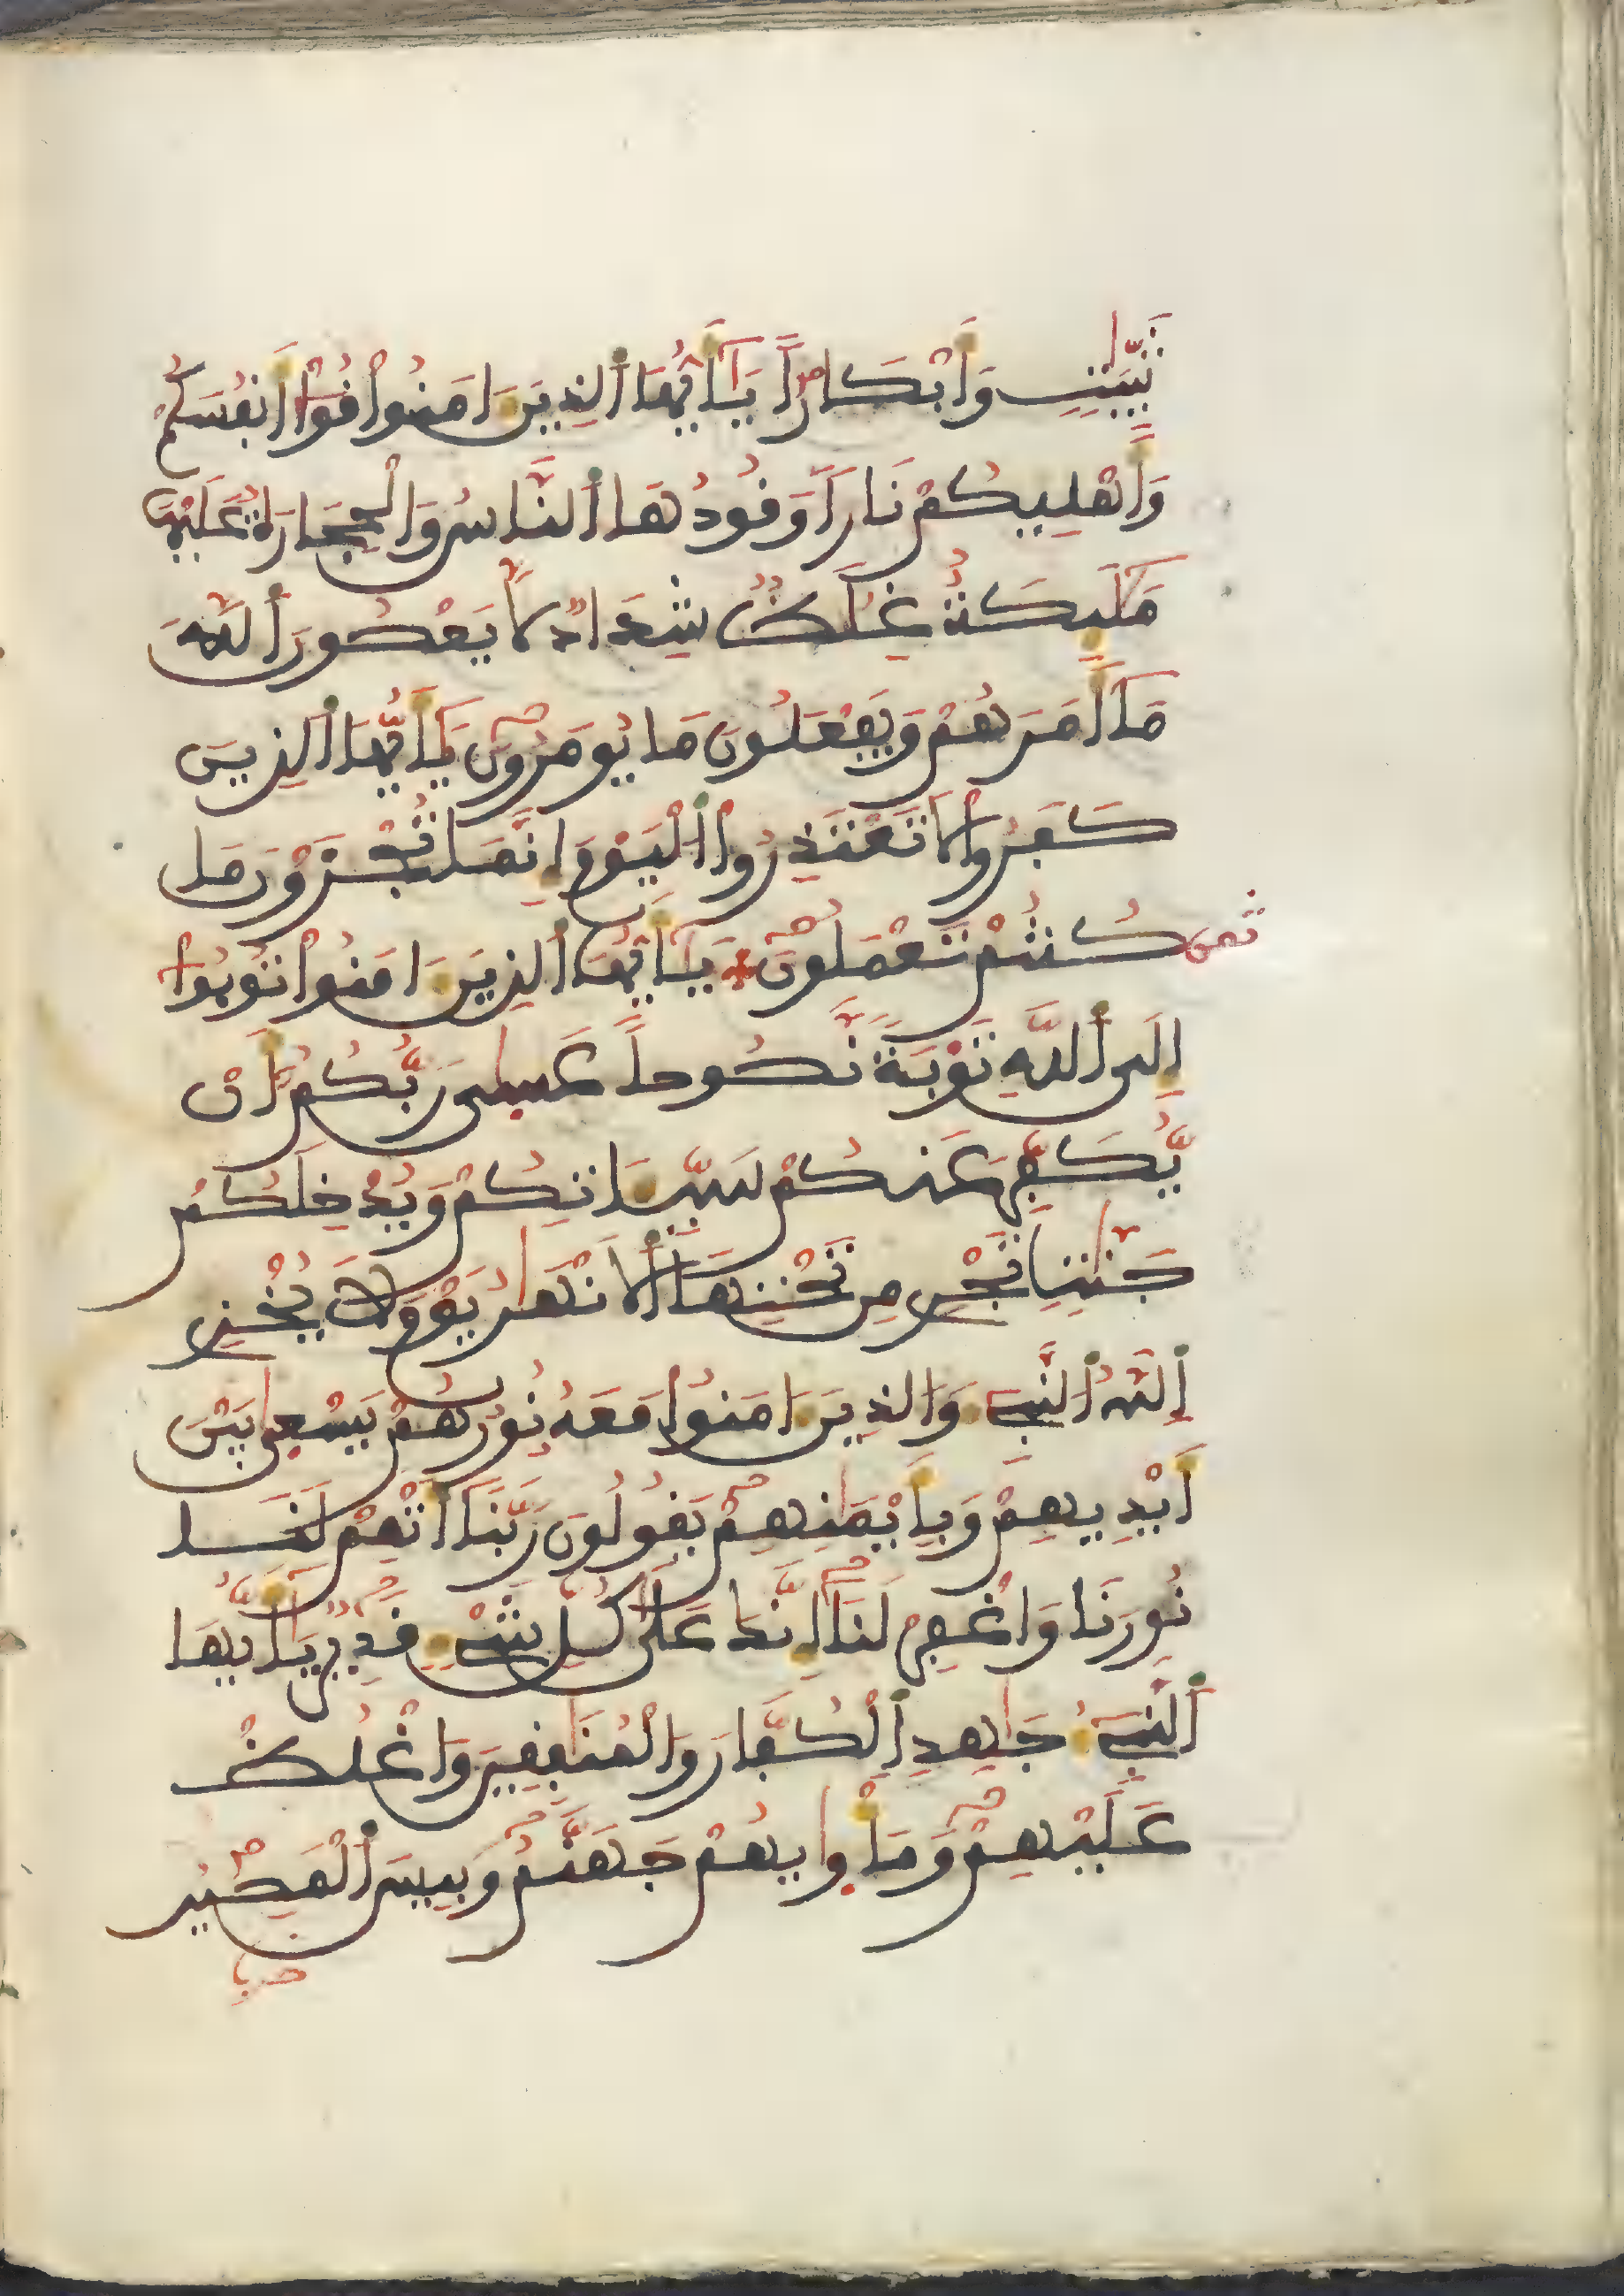 ثَيِّبَٰتٖ وَأَبْكَاراٗ يَٰٓأَيُّهَا اَ۬لذِينَ ءَامَنُواْ قُوٓاْ أَنفُسَكُمْ
وَأَهْلِيكُمْ نَاراٗ وَقُودُهَا اَ۬لنَّاسُ وَالْحِجَارَةُ عَلَيْهَا
مَلَٰٓئِكَةٌ غِلَاظٞ شِدَادٞ لَّا يَعْصُونَ اَ۬للَّهَ
مَآ أَمَرَهُمْ وَيَفْعَلُونَ مَا يُومَرُونَ يَٰٓأَيُّهَا اَ۬لذِينَ
كَفَرُواْ لَا تَعْتَذِرُواْ اُ۬لْيَوْمَ إِنَّمَا تُجْزَوْنَ مَا
ثمن كُنتُمْ تَعْمَلُونَ يَٰٓأَيُّهَا اَ۬لذِينَ ءَامَنُواْ تُوبُوٓاْ
إِلَى اَ۬للَّهِ تَوْبَةٗ نَّصُوحاً عَسَىٰ رَبُّكُمُۥٓ أَنْ
يُّكَفِّرَ عَنكُمْ سَيِّـَٔاتِكُمْ وَيُدْخِلَكُمْ
جَنَّٰتٖ تَجْرِے مِن تَحْتِهَا اَ۬لَانْهَٰرُ يَوْمَ لَا يُخْزِے
اِ۬للَّهُ اُ۬لنَّبِےٓءَ وَالذِينَ ءَامَنُواْ مَعَهُۥ نُورُهُمْ يَسْعَىٰ بَيْنَ
أَيْدِيهِمْ وَبِأَيْمَٰنِهِمْ يَقُولُونَ رَبَّنَآ أَتْمِمْ لَنَا
نُورَنَا وَاغْفِرْ لَنَآ إِنَّكَ عَلَىٰ كُلِّ شَےْءٖ قَدِيرٞ يَٰٓأَيُّهَا
اَ۬لنَّبِےٓءُ جَٰهِدِ اِ۬لْكُفَّارَ وَالْمُنَٰفِقِينَ وَاغْلُظْ
عَلَيْهِمْ وَمَأْوَىٰهُمْ جَهَنَّمُ وَبِيسَ اَ۬لْمَصِيرُ